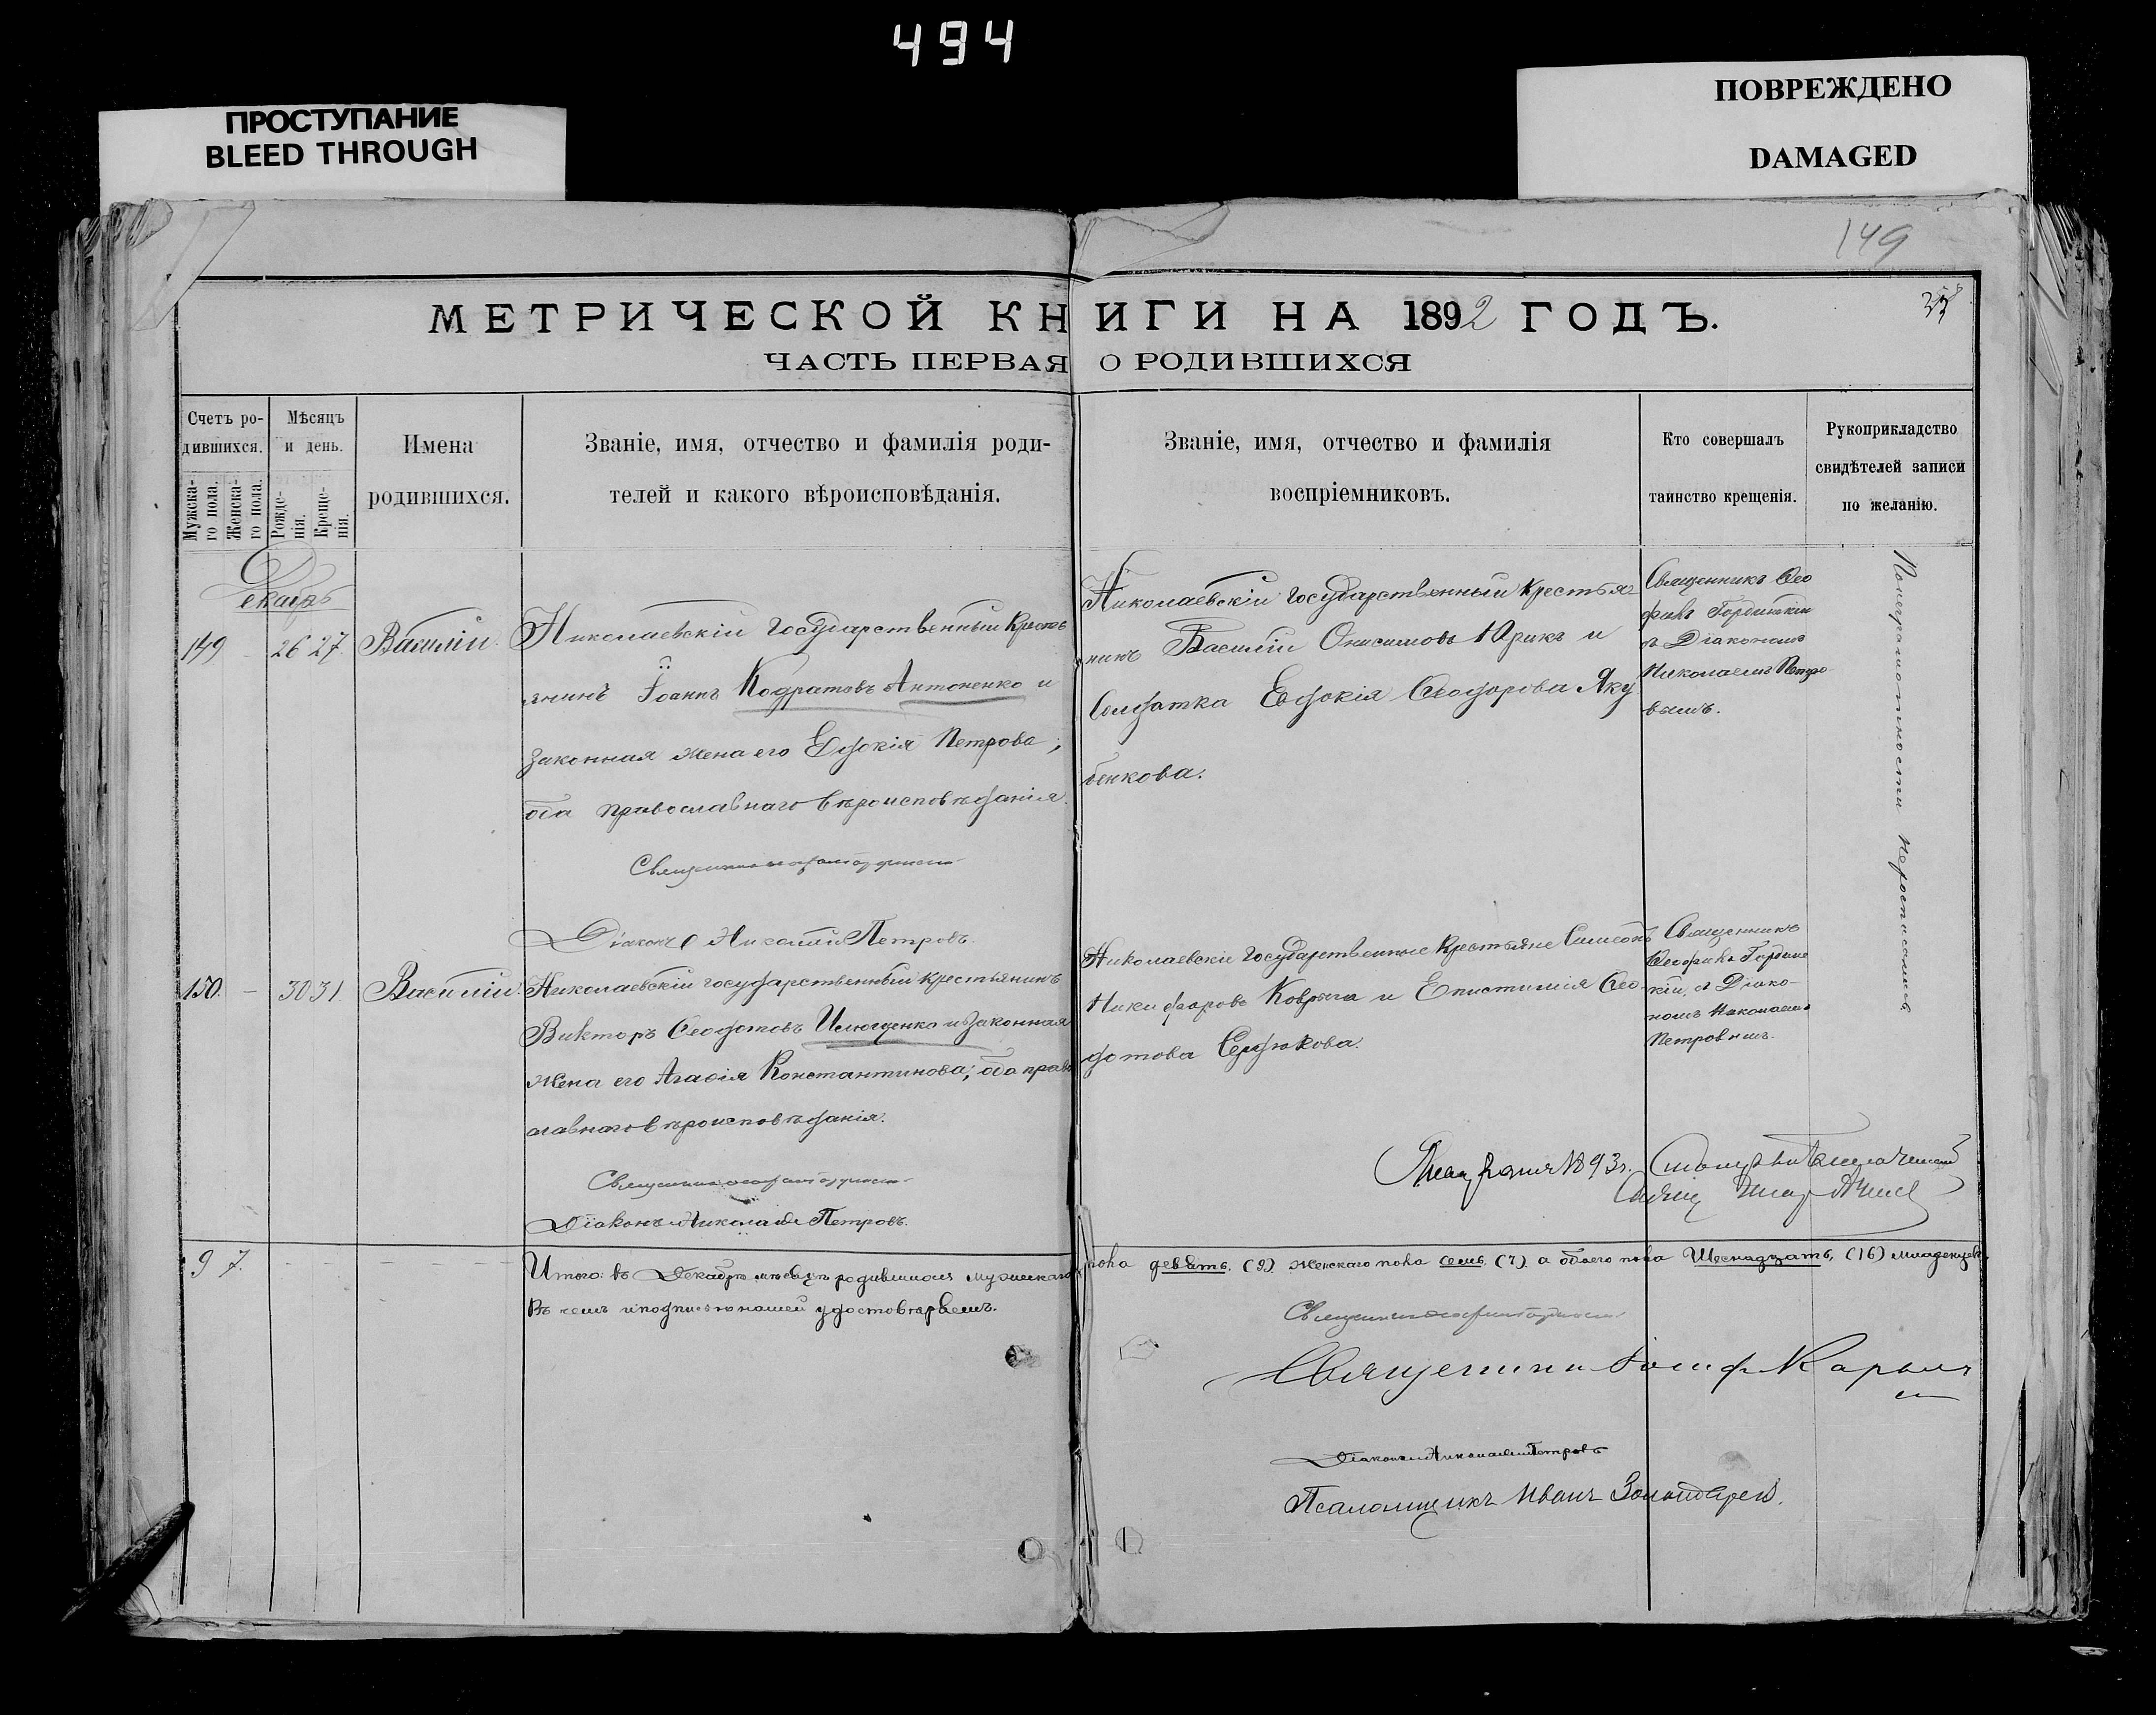 494
ПРОСТУПАНИЕ
BLEED THROUGH
ПОВРЕЖДЕНО
DAMAGED
149
МЕТРИЧЕСКОЙ КНИГИ НА 1892 ГОДЪ.
ЧАСТЬ ПЕРВАЯ О РОДИВШИХСЯ
Счетъ ро-
дившихся.
Мужска-
го пола.
Женска-
го пола.
Мѣсяцъ
и день.
Рожде-
нія.
Креще-
нія.
Имена
родившихся.
Званіе, имя, отчество и фамилія роди-
телей и какого вѣроисповѣданія.
Званіе, имя, отчество и фамилія
воспріемниковъ.
Кто совершалъ
таинство крещенія.
Рукоприкладство
свидѣтелей записи
по желанію.
Декабрь
149 - 26 27. Василій.
Николаевскій государственный кресть
янинъ Іоаннъ Кодратовъ Антоненко и
законная жена его Евдокія Петрова;
оба православнаго вѣроисповѣданія.
Священникъ
Діаконъ Николай Петровъ.
Николаевскій государственный крестья
нинъ Василій Онисимовъ Юрикъ и
Солдатка Евдокія Ѳеодорова Яку
бенкова.
Священникъ Ѳео
фанъ
съ Діакономъ
Николаемъ Петро
вымъ.
По неграмотности не росписались
150. - 30 31. Василій.
Николаевскій государственный крестьянинъ
Викторъ Ѳеодотовъ Ильющенко и законная
жена его Агаѳія Константинова; оба право
славнаго вѣроисповѣданія.
Священникъ
Діаконъ Николай Петровъ.
Николаевскіе государственные крестьяне Симеонъ
Никифоровъ Коврыга и Епистимія Ѳео
дотова Сердюкова.
Священникъ
Ѳеофанъ
кій, съ Діако-
номъ Николаемъ
Петровымъ.
1893 г.
9 7.
Итого: въ Декабрѣ мѣсяцѣ родившихся мужескаго пола девять (9) женскаго пола семь (7) а обоего пола Шеснадцать (16) младенцевъ.
Въ чемъ и подписью нашей удостовѣряемъ.
Священникъ
Священникъ Іосифъ
Діаконъ Николай Петровъ
Псаломщикъ Иванъ